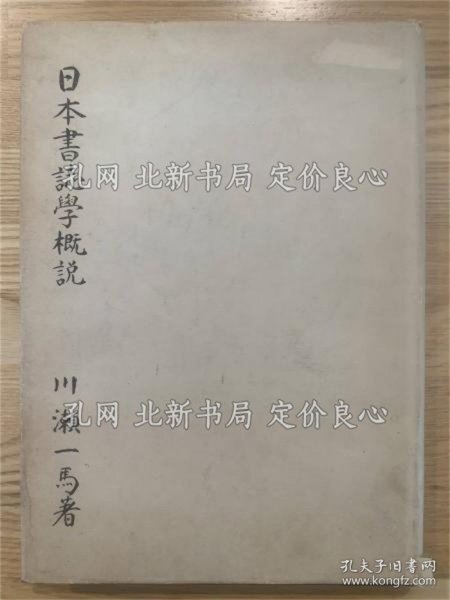 日本書誌學概説
川瀬一馬著
孔网 北新书局 定价良心
孔网 北新书局 定价良心
孔夫子旧书网
www.kongfz.com